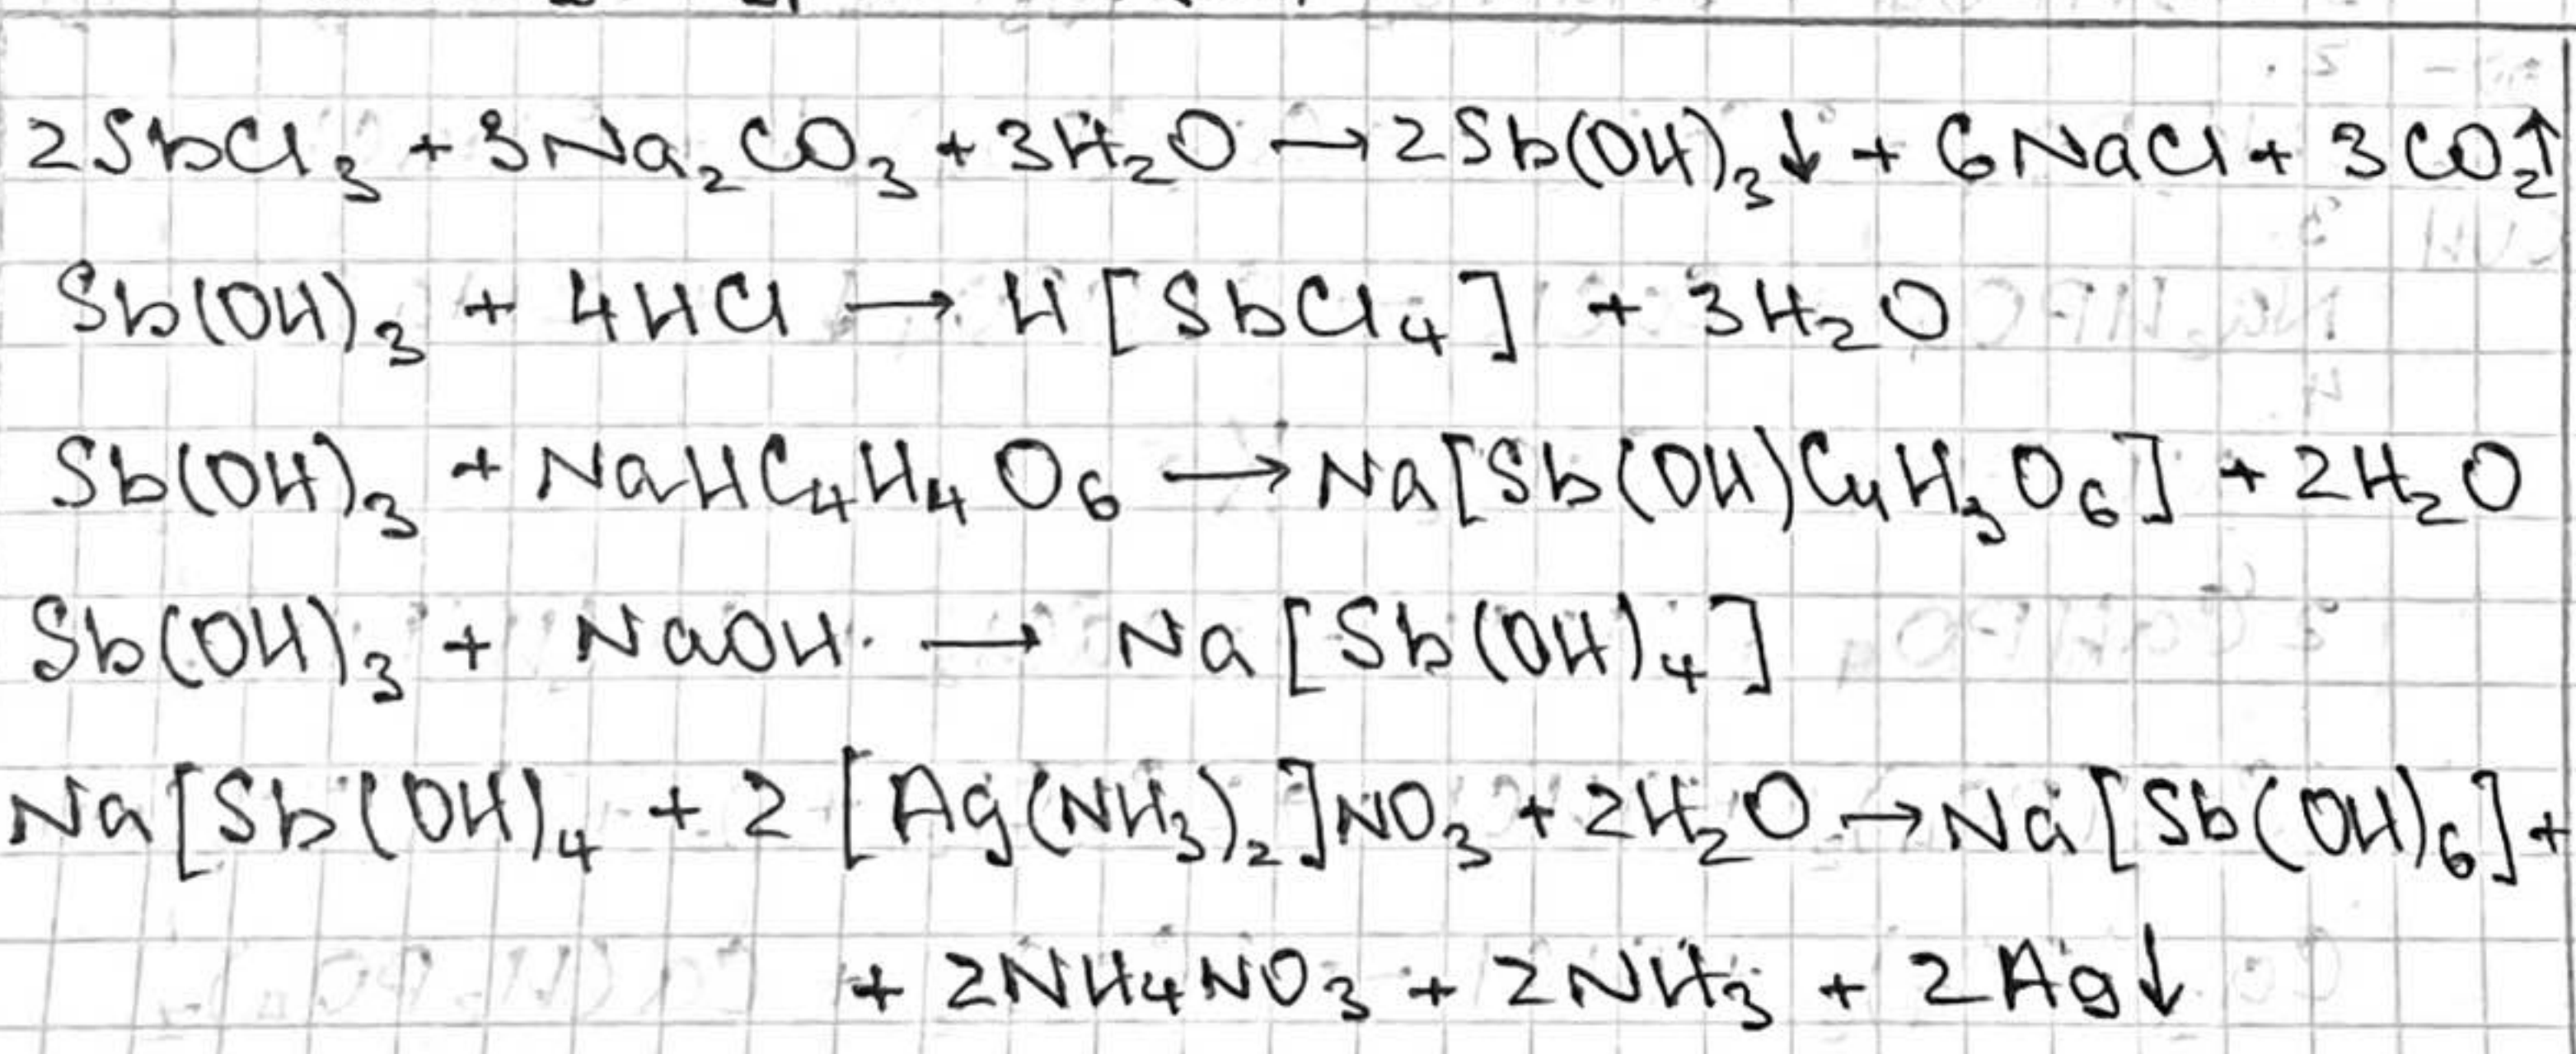 2SbCl₃ + 3Na₂CO₃ + 3H₂O → 2Sb(OH)₃↓ + 6NaCl + 3CO₂↑
Sb(OH)₃ + 4HCl → H[SbCl₄] + 3H₂O
Sb(OH)₃ + NaHC₄H₄O₆ → Na[Sb(OH)C₄H₃O₆] + 2H₂O
Sb(OH)₃ + NaOH → Na[Sb(OH)₄]
Na[Sb(OH)₄ + 2[Ag(NH₃)₂]NO₃ + 2H₂O → Na[Sb(OH)₆] +
+ 2NH₄NO₃ + 2NH₃ + 2Ag↓